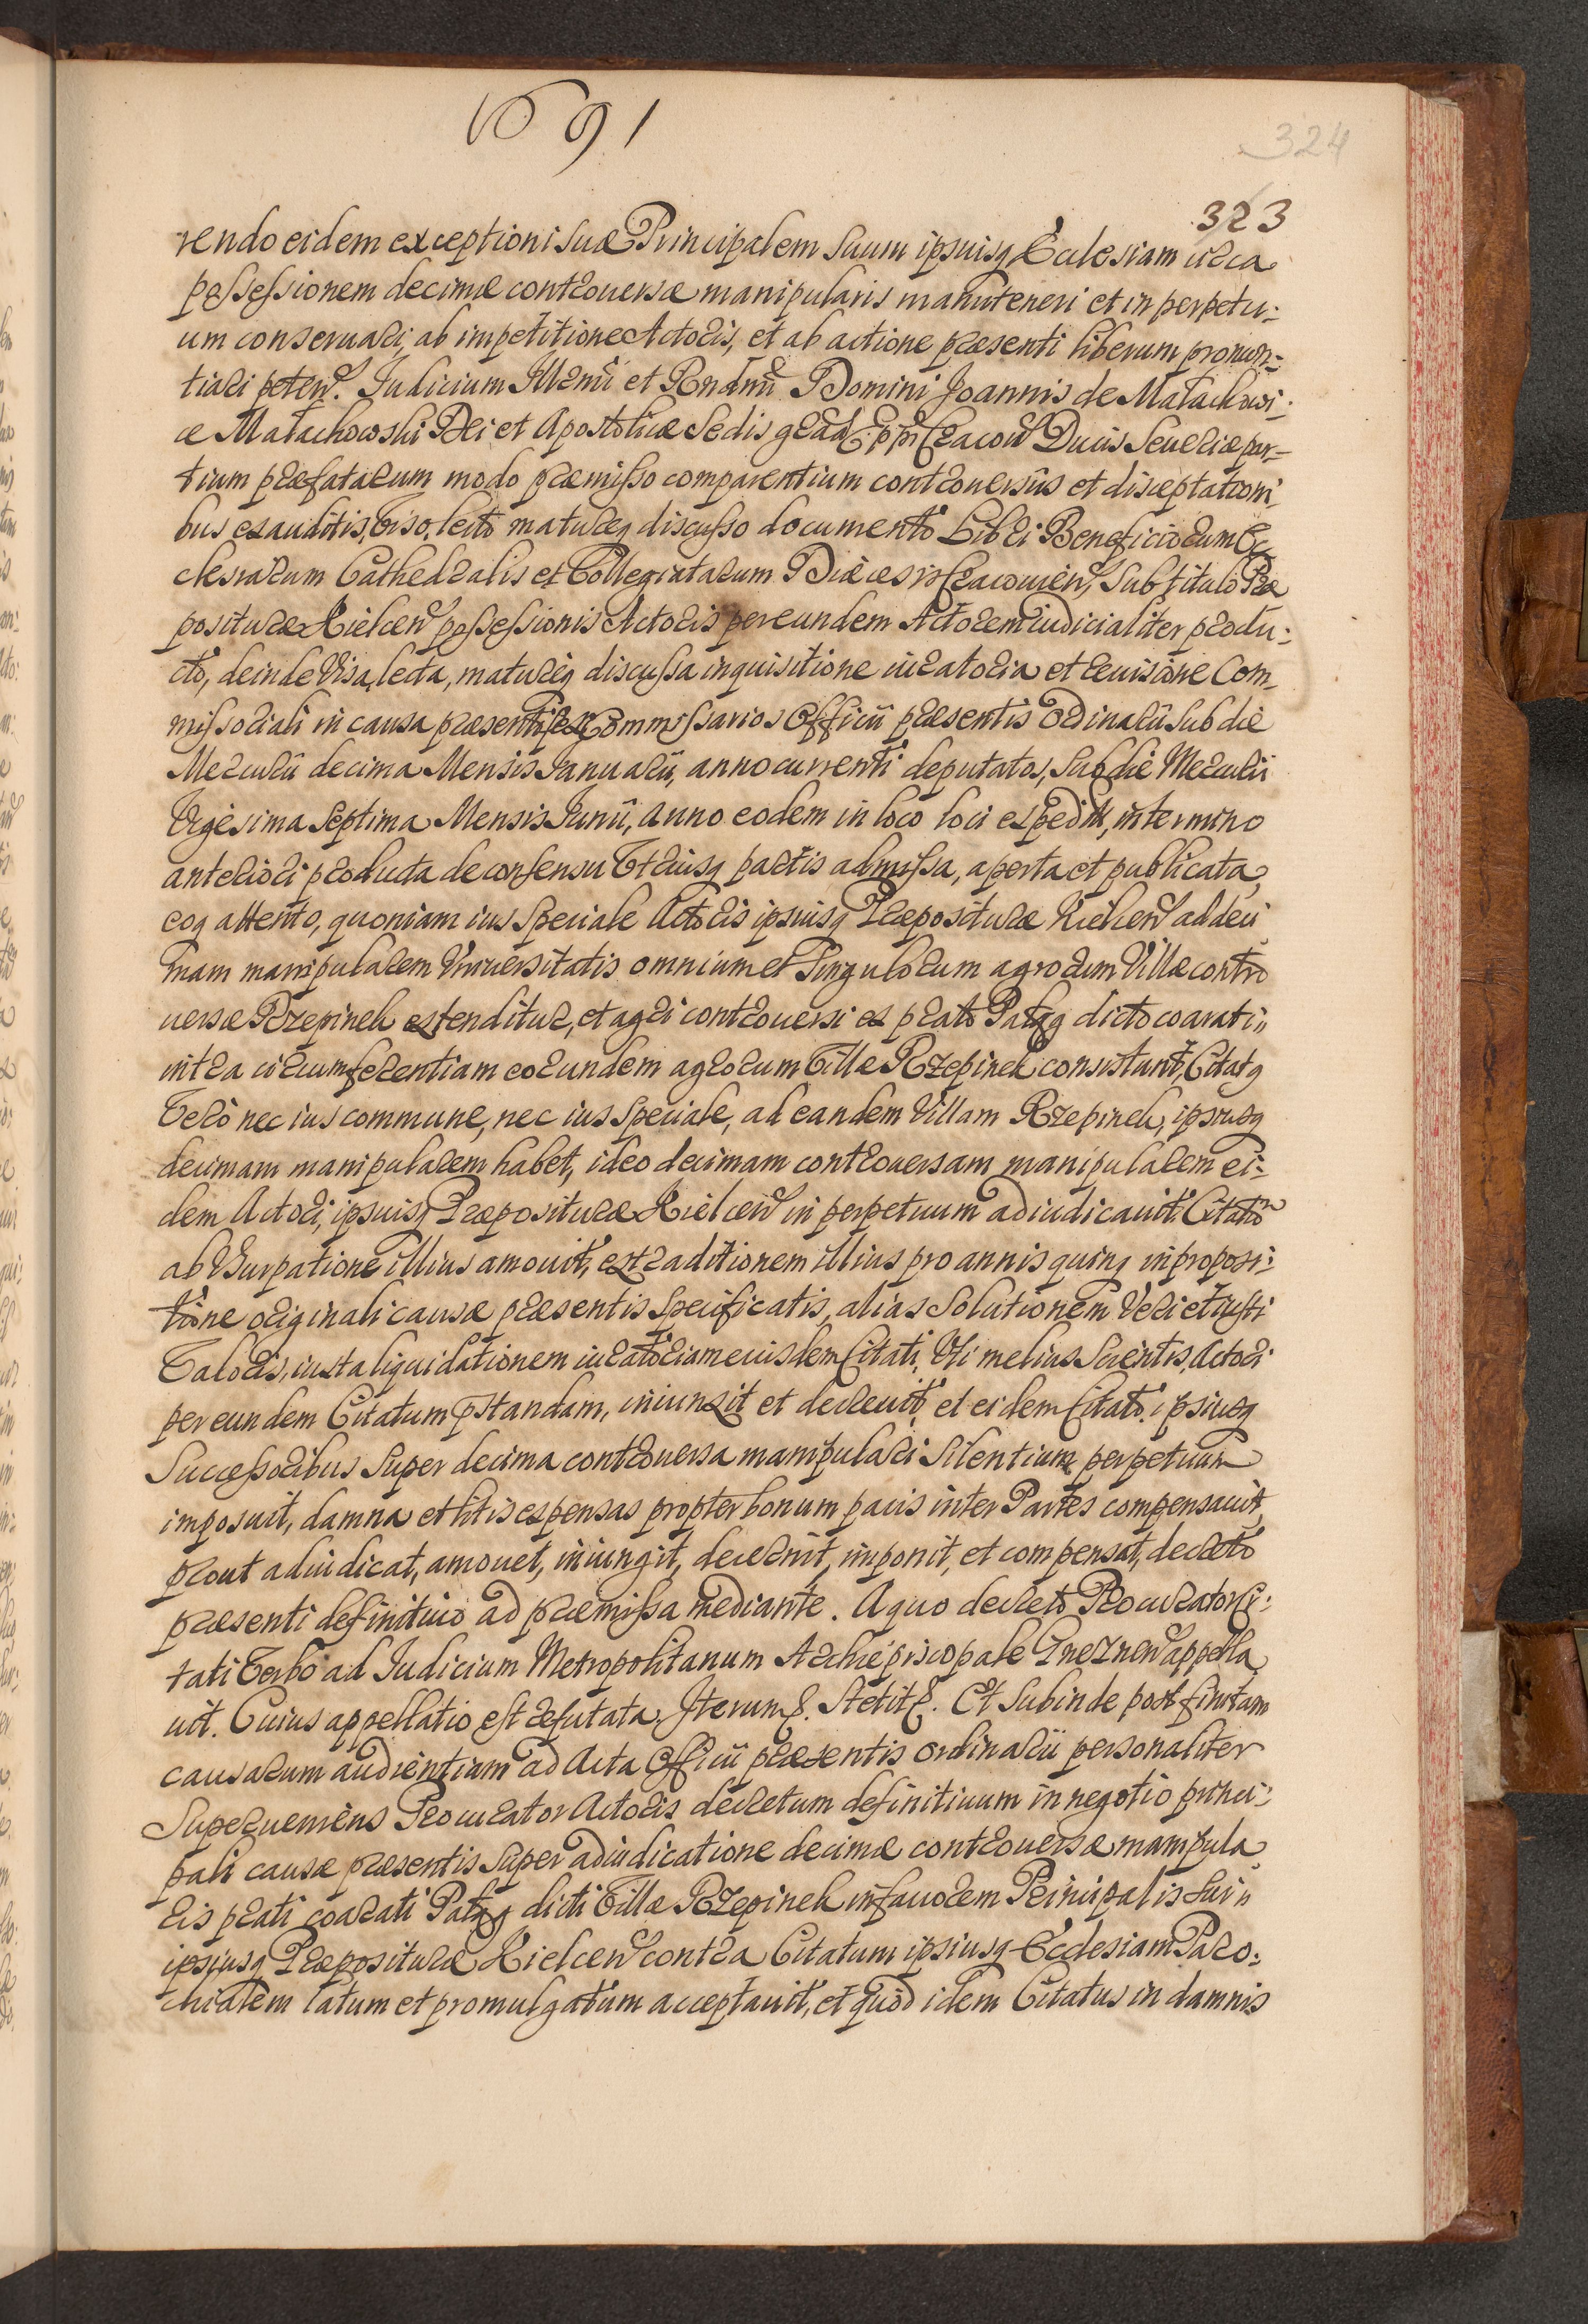 1691
324
323
rendo eidem exceptioni suæ Principalem suum ipsiusq Ecclesiam circa
possessionem decimæ controuersæ manipularis manuteneri et in perpetu:
um conseruari, ab impetitione Actoris, et ab actione præsenti liberum pronun=
tiari peteñ. Iudicium Illmi et Rndmi Domini Joannis de Małachowi:
cæ Małachowski Dei et Apostolicæ Sedis grãa Eppi Cracoviẽ Ducis Seueriæ par=
tium præfatarum modo præmisso comparentium controuersiis et disceptationi
bus exauditis, Viso, lecto matureq discusso documento Libri Beneficiorum Ec
clesiarum Cathedralis et Collegiatarum Diæcesis Cracouien, sub titulo Præ
posituræ Kielceñ possessionis Actoris per eundem Actorem iudicialiter produ:
cto, deinde Visa, lecta, matureq discussa inquisitione iuratoria et reuisione Com=
missoriali in causa præsenti per Commissarios Officii præsentis Ordinarii sub die
Mercurii decima Mensis Ianuarii, anno currenti deputatos, sub die Mercurii
Vigesima septima Mensis Iunii, anno eodem in loco loci expedita, in termino
anteriori producta de consensu Vtriusq partis admissa, aperta et publicata,
eoq attento, quoniam ius speciale Actoris ipsiusq Præposituræ Kielceñ ad deci
mam manipularem Vniuersitatis omnium et singulorum agrorum Villæ contro
uersæ Rzepinek extenditur, et agri controuersi ex prato Pałęg dicto coarati,,
intra circumferentiam eorundem agrorum Villæ Rzepinek consistunt, Citatq
Vero nec ius commune, nec ius speciale, ad eandem Villam Rzepinek, ipsiusq
decimam manipularem habet, ideo decimam controuersam manipularem ei=
dem Actori, ipsiusq Præposituræ Kielceñ in perpetuum adiudicauit Citatum
ab Vsurpatione illius amouit, extraditionem illius pro annis quinq in proposi:
tione originali causæ præsentis specificatis, alias solutionem Veri et iusti
Valoris, iuxta liquidationem iuratoriam eiusdem Citati, Vti melius scientis, Actori
per eundem Citatum pstandam, iniunxit et decreuit, et eidem Citato, ipsiusq
Successoribus super decima controuersa manipulari silentium perpetuum
imposuit, damna et litis expensas propter bonum pacis inter Partes compensauit,
prout adiudicat, amouet, iniungit, decernit, imponit, et compensat, decreto
præsenti definitiuo ad præmissa mediante. A quo decreto Procurator Ci:
tati Verbo ad Iudicium Metropolitanum Archiepiscopale Gnezneñ appella
uit. Cuius appellatio est refutata. Iterum &. Stetit &. Et subinde post finitam
causarum audientiam ad Acta Officii præsentis ordinarii personaliter
Superueniens Procurator Actoris decretum definitiuum in negotio princi:
pali causæ præsentis super adiudicatione decimæ controuersæ manipula
ris prati coarati Pałęg dicti Villæ Rzepinek in fauorem Principalis sui,,
ipsiusq Præposituræ Kielceñ contra Citatum ipsiusq Ecclesiam Paro:
chialem latum et promulgatum acceptauit, et quod idem Citatus in damnis